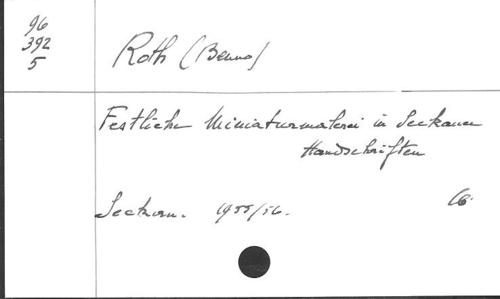 96
392
5
Roth (Benno)
Festliche Miniaturmalerei in Seckauer
Handschriften
Seckau. 1955/56.